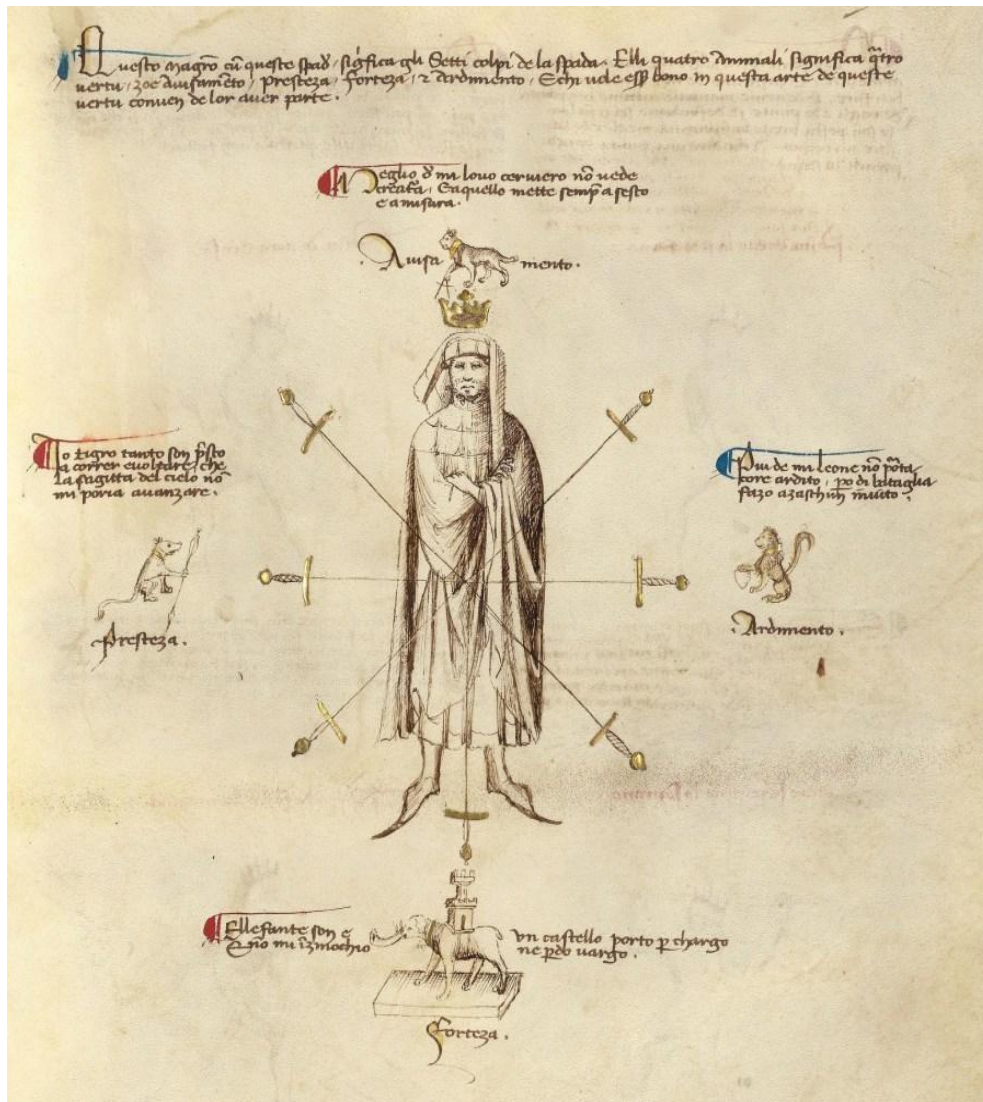 Questo magrō cū queste spad, sigfica gli Setti colpi de la spada. Elli quatro Animali significa q̄tro
vertu, zoe Avisamēto, Presteza, Forteza, ⁊ Ardimento, E chi vole essʼ bono in questa arte de queste
vertu conven de lor aver parte.
Meglio dʼ mi lovo cerviero nō vede
creatʼa, Eaquello mette sempʼ a sesto
e a misura.
Avisa mento.
Io tigro tanto son pʼsto
a correr e voltare, che
la sagitta del cielo nō
mi poria avanzare.
Presteza.
Piu de mi leone nō pʼota
core ardito, pʼo di bataglia
fazo azaschun invito.
Ardimento.
Ellefante son e
un castello porto pʼ chargo
nē pʼdo vargo.
Forteza.